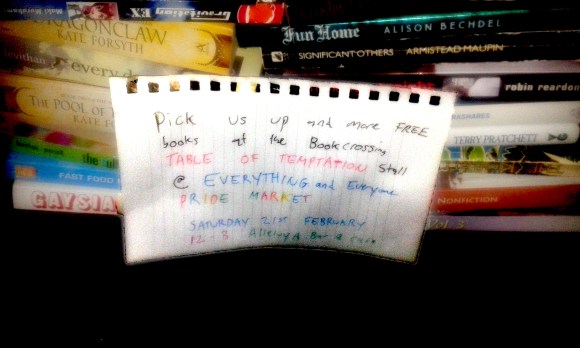 Maki Murakami
gravitation EX
DRAGONCLAW
KATE FORSYTH
every d
THE POOL OF
KATE FO
FAST FOOD
GAYSIA
Fun Home ALISON BECHDEL
SIGNIFICANT OTHERS ARMISTEAD MAUPIN
robin reardon
TERRY PRATCHETT
NONFICTION
Pick us up and more FREE
books at the Bookcrossing
TABLE OF TEMPTATION Stall
@ EVERYTHING and Everyone
PRIDE MARKET
SATURDAY 21ST FEBRUARY
12-3 Bar & Cafe